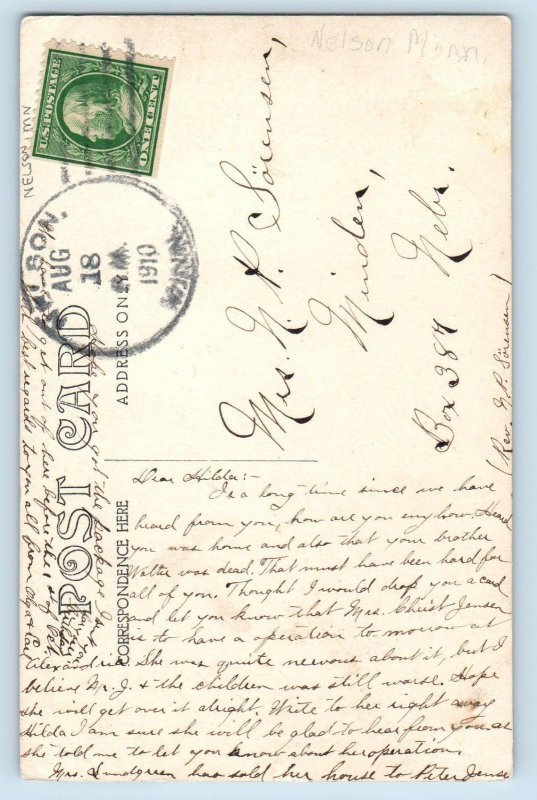 Nelson Minn.
NELSON MN
U.S. POSTAGE
ONE CENT
NELSON,
AUG
18
M
1910
MINN.
POST CARD
ADDRESS ONLY
CORRESPONDENCE HERE
Mrs. N. P. Sörensen,
Minden,
Nebr.
Box 384
(Rev. N. P. Sörensen)
Dear Hilda:-
Is a long time since we have
heard from you, how are you anyhow. Heard
you was home and also that your brother
Walter was dead. That must have been hard for
all of you. Thought I would drop you a card
and let you know that Mrs. Christ Jensen
is to have a operation to morrow at
Alexandria. She was quite nervous about it, but I
believe Mr. J. + the children was still worse. Hope
she will get over it alright. Write to her right away
Hilda I am sure she will be glad to hear from you, as
she told me to let you know about her operation.
Mrs. Lundgreen has sold her house to Peter Jense
get out of here before the
best regards to you all from Olga + Carl
you got the package I sent